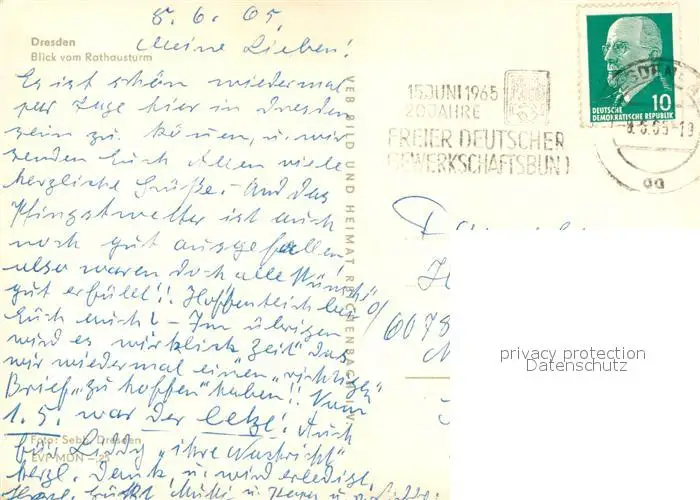 8.6.65,
Dresden
Blick vom Rathausturm
Meine Lieben!
Es ist schön wiedermal
per Zuge hier in Dresden
sein zu können, u. wir
senden Euch Allen viele
herzliche Grüße. Und das
Pfingstwetter ist auch
noch gut ausgefallen
also waren doch alle Wünsche
gut erfüllt! Hoffentlich bei
Euch auch! - Im übrigen
wird es wirklich Zeit das
wir wiedermal einen "richtigen
Brief" zu hoffen haben!! Vom
1.5. war der letzte! Auch
für Liddy "ihre Nachricht"
herzl. Dank u. wird erledigt.
Foto: Sebb, Dresden
EVP MDN -.25
VEB BILD UND HEIMAT REICHENBACH I. V.
15. JUNI 1965
20 JAHRE
FREIER DEUTSCHER
GEWERKSCHAFTSBUND
DEUTSCHE
DEMOKRATISCHE REPUBLIK
10
6078
privacy protection
Datenschutz